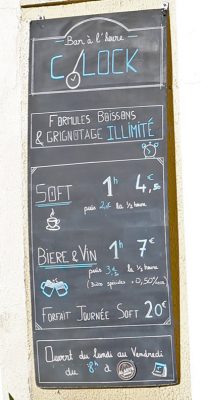 Bar à l'heure
CLOCK
FORMULES BOISSONS
& GRIGNOTAGE ILLIMITÉ
SOFT 1h 4,50
puis 2€ la 1/2 heure
BIERE & VIN 1h 7€
puis 3€ la 1/2 heure
(Bières spéciales + 0,50€/heure)
FORFAIT JOURNÉE SOFT 20€
Ouvert du Lundi au Vendredi
du 8h à